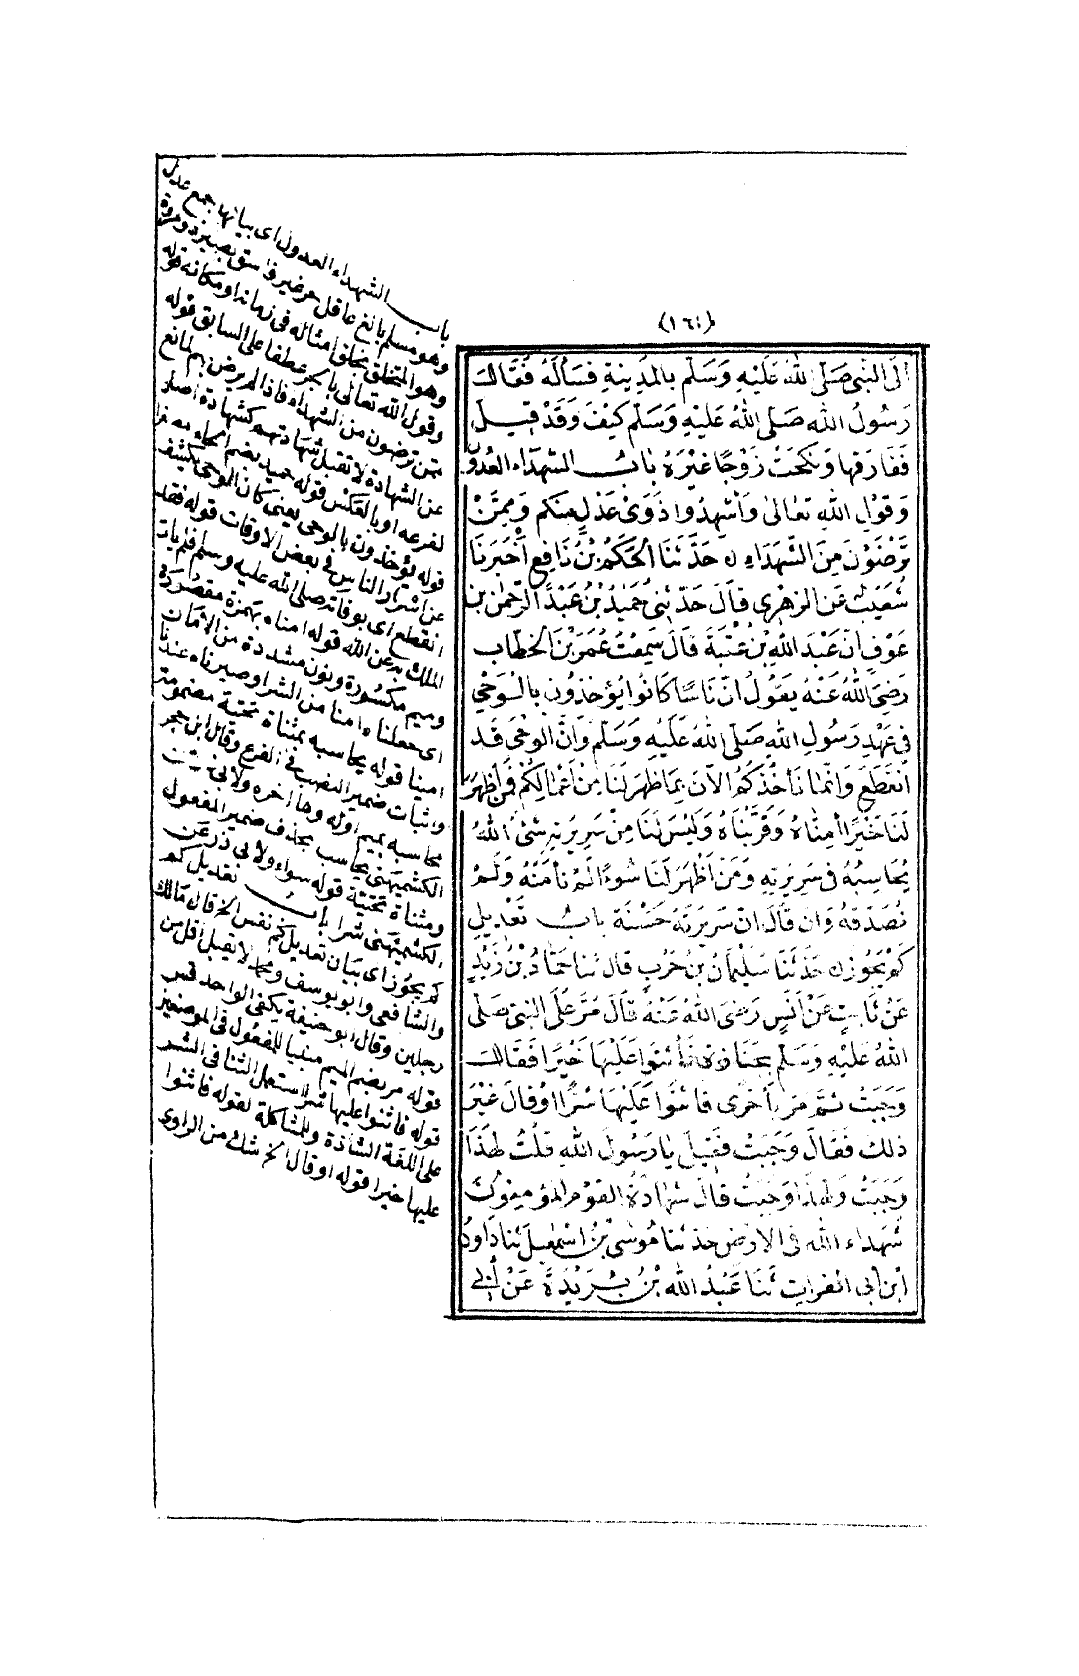 (١٦٠)
الَى النَّبِيِّ صَلَّى اللهُ عَلَيْهِ وَسَلَّمَ بِالْمَدِينَةِ فَسَأَلَهُ فَقَالَ
رَسُولُ اللهِ صَلَّى اللهُ عَلَيْهِ وَسَلَّمَ كَيْفَ وَقَدْ قِيلَ
فَفَارَقَهَا وَنَكَحَتْ زَوْجًا غَيْرَهُ بَابُ الشُّهَدَاءِ العُدُولِ
وَقَوْلِ اللهِ تَعَالَى وَأَشْهِدُوا ذَوَىْ عَدْلٍ مِنْكُمْ وَمِمَّنْ
تَرْضَوْنَ مِنَ الشُّهَدَاءِ ه حَدَّثَنَا الْحَكَمُ بْنُ نَافِعٍ أَخْبَرَنَا
شُعَيْبٌ عَنِ الزُّهْرِي قَالَ حَدَّثَنِي حُمَيْدُ بْنُ عَبْدِ الرَّحْمٰنِ بْنِ
عَوْفٍ أَنَّ عَبْدَ اللهِ بْنَ عُتْبَةَ قَالَ سَمِعْتُ عُمَرَ بْنَ الْخَطَّابِ
رَضِيَ اللهُ عَنْهُ يَقُولُ انَّ نَاسًا كَانُوا يُؤْخَذُونَ بِالْوَحْيِ
فِي عَهْدِ رَسُولِ اللهِ صَلَّى اللهُ عَلَيْهِ وَسَلَّمَ وَانَّ الوَحْيَ قَدْ
انْقَطَعَ وَانَّمَا نَأْخُذُكُمُ الْآنَ بِمَا ظَهَرَ لَنَا مِنْ اَعْمَالِكُمْ فَمَنْ اَظْهَرَ
لَنَا خَيْرًا أَمِنَّاهُ وَقَرَّبْنَاهُ وَلَيْسَ لَنَا مِنْ سَرِيرَتِهِ شَىْءٌ اَللهُ
يُحَاسِبُهُ فِي سَرِيرَتِهِ وَمَنْ اَظْهَرَ لَنَا سُوءًا لَمْ نَأْمَنْهُ وَلَمْ
نُصَدِّقْهُ وَانْ قَالَ انَّ سَرِيرَتَهُ حَسَنَةٌ بَابُ تَعْدِيلِ
كَمْ يَجُوزُ ه حَدَّثَنَا سُلَيْمَانُ بْنُ حَرْبٍ قَالَ ثَنَا حَمَّادُ بْنُ زَيْدٍ
عَنْ ثَابِتٍ عَنْ أَنَسٍ رَضِيَ اللهُ عَنْهُ قَالَ مُرَّ عَلَى النَّبِيِّ صَلَّى
اللهُ عَلَيْهِ وَسَلَّمَ بِجَنَازَةٍ فَأَثْنَوْا عَلَيْهَا خَيْرًا فَقَالَ
وَجَبَتْ ثُمَّ مُرَّ بِأُخْرَى فَاثْنَوْا عَلَيْهَا شَرًّا اوْ قَالَ غَيْرَ
ذلِكَ فَقَالَ وَجَبَتْ فَقِيلَ يَا رَسُولَ اللهِ قُلْتَ لِهٰذَا
وَجَبَتْ وَلِهٰذَا وَجَبَتْ قَالَ شَهَادَةُ القَوْمِ المُؤْمِنُونَ
شُهَدَاءُ اللهِ فِي الْارْضِ حَدَّثَنَا مُوسَى بْنُ اسْمٰعِيلَ ثَنَا دَاوُدُ
ابْنُ أَبِي الْفُرَاتِ ثَنَا عَبْدُ اللهِ بْنُ بُرَيْدَةَ عَنْ أَبِي
باب الشهداء العدول اى بيانها جمع عدل
وهو مسلم بالغ عاقل غير فاسق بصير ذو مروة
وهو المتخلق بخلق امثاله فى زمانه او مكانه قوله
وقول الله تعالى بالجر عطفا على السابق قوله
ممن ترضون من الشهداء فاذا لم يرض بهم لمانع
عن الشهادة لا تقبل شهادتهم كشهادة اصل
لفرعه او بالعكس قوله حميد بضم الحاء مصغرا
قوله يؤخذون بالوحى يعنى كان الوحى يكشف
عن اشرار الناس فى بعض الاوقات قوله فقد
انقطع اى بوفاته صلى الله عليه وسلم فلم يأت
الملك به عن الله قوله امناه بهمزة مقصورة
وميم مكسورة ونون مشددة من الامان
اى جعلناه امنا من الشر او صيرناه عندنا
امينا قوله يحاسبه بمثناة تحتية مضمومة
واثبات ضمير النصب فى الفرع وقال ابن حجر
محاسبه بميم اوله وها اخره ولابى ذر عن
الكشميهنى يحاسب بحذف ضمير المفعول
ومثناة تحتية قوله سواء ولابى ذر عن
الكشميهنى شرا باب تعديل كم
كم يجوز اى بيان تعديل كم نفس الخ قال مالك
والشافعى وابو يوسف ومحمد لا تقبل اقل من
رجلين وقال ابو حنيفة يكفى الواحد قس
قوله مر بضم الميم مبنيا للمفعول فى الموضعين
قوله فاثنوا عليها شرا استعمل الثنا فى الشر
على اللغة الشاذة وللمشاكلة لقوله فاثنوا
عليها خيرا قوله او قال الخ شك من الراوى